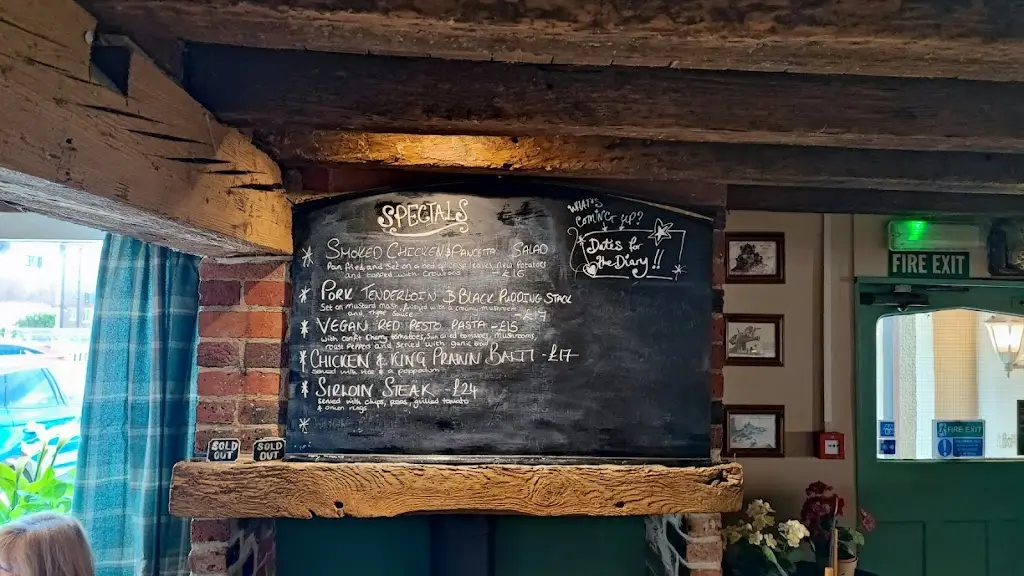 SPECIALS
WHAT'S
COMING UP?
Dates for
the Diary!!
SMOKED CHICKEN & PANCETTA SALAD
Pan fried and set on a bed of leaves, new Potatoes
and topped with Croutons
PORK TENDERLOIN & BLACK PUDDING STACK
Set on mustard mash, finished with a creamy mushroom
and sauce -£17
VEGAN RED PESTO PASTA -£15
with confit cherry tomatoes, Sun dried tomatoes, mushrooms,
roast Peppers and served with garlic bread
CHICKEN & KING PRAWN BALTI -£17
Served with rice & a poppadum
SIRLOIN STEAK -£24
Served with chips, peas, grilled tomato
& onion rings
SOLD
OUT
SOLD
OUT
FIRE EXIT
FIRE EXIT